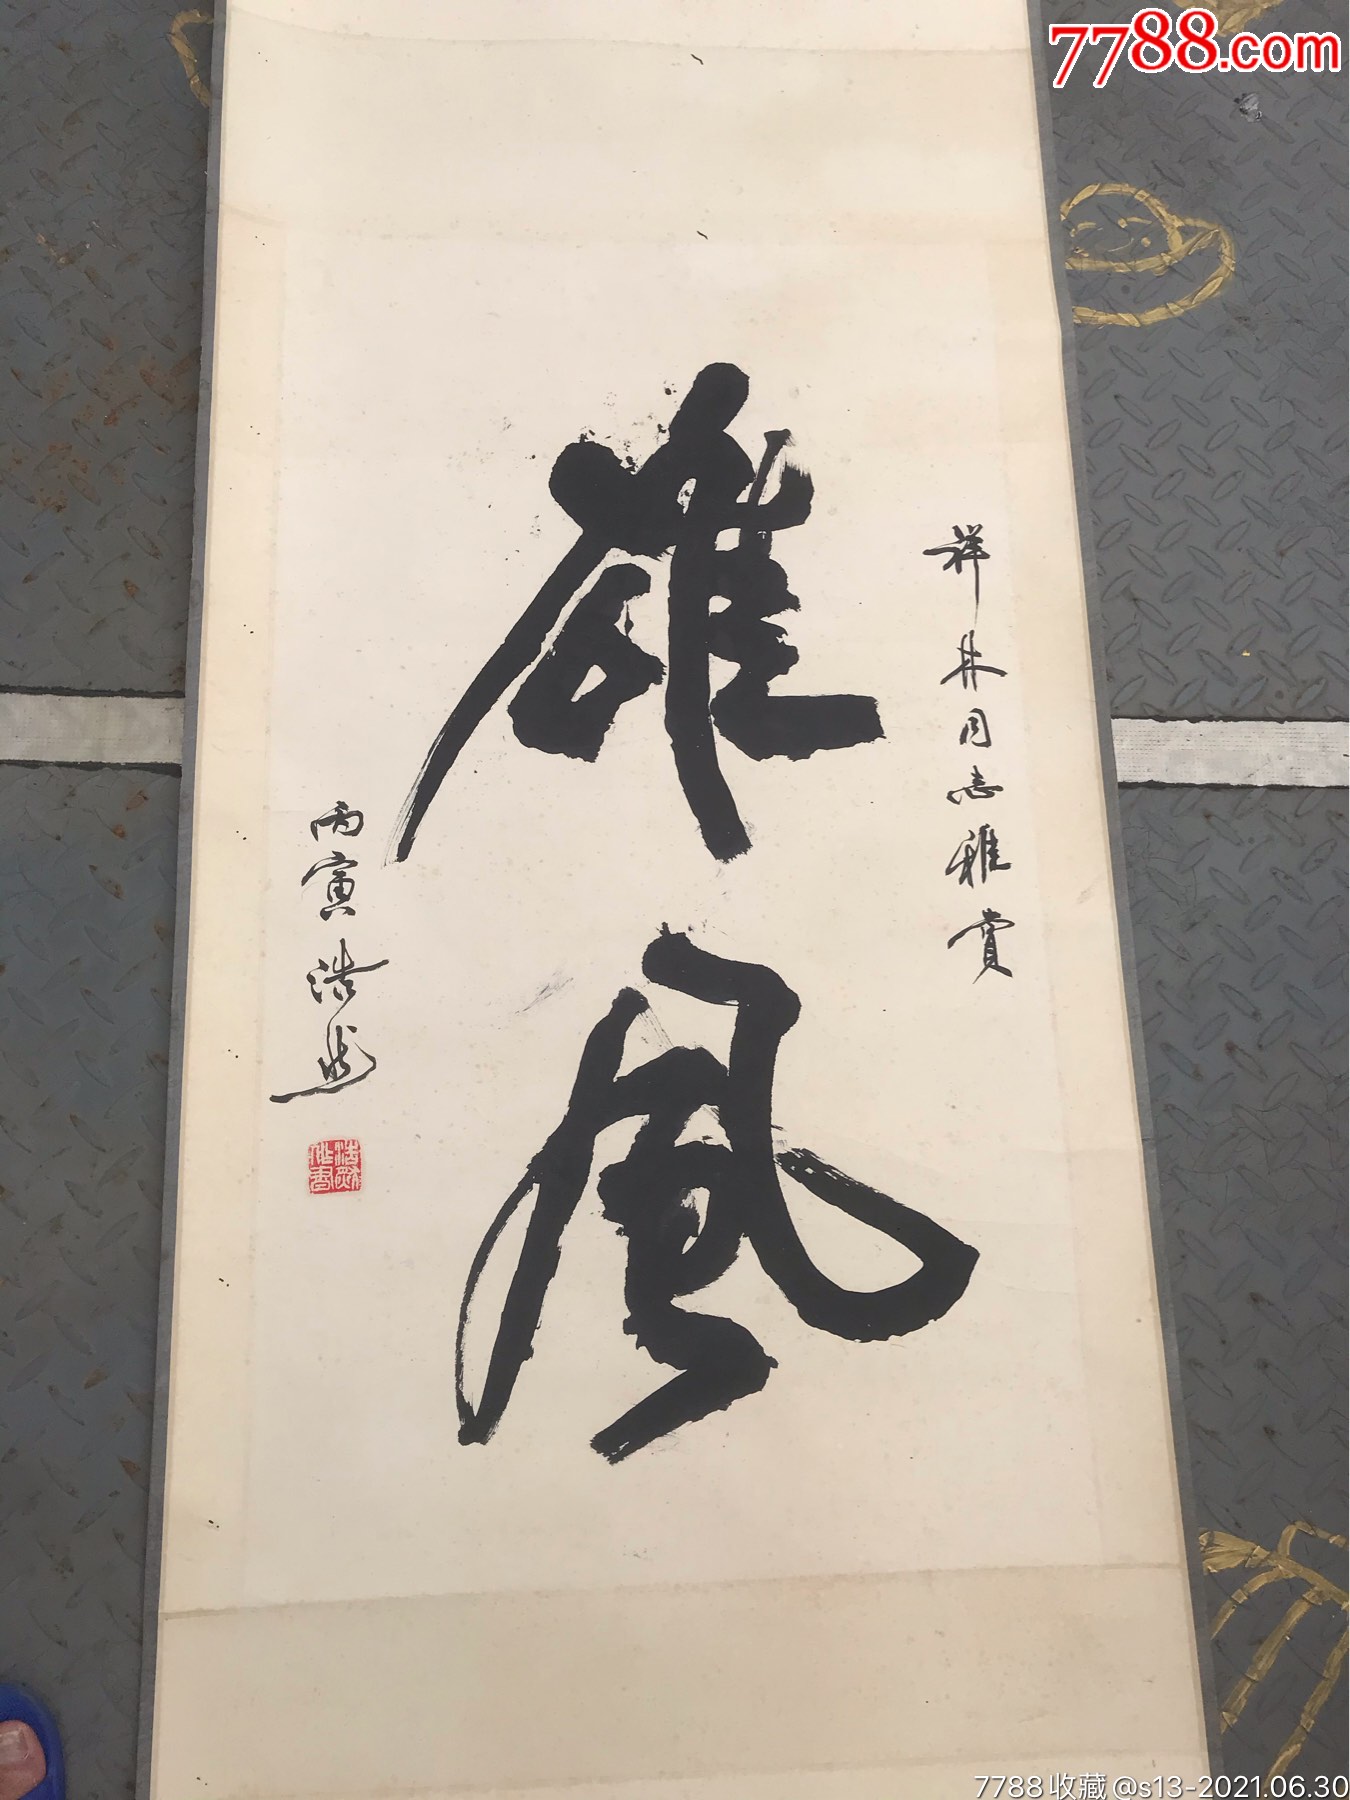 7788.com
祥林同志雅赏
雄风
丙寅浩然
7788收藏@s13-2021.06.30